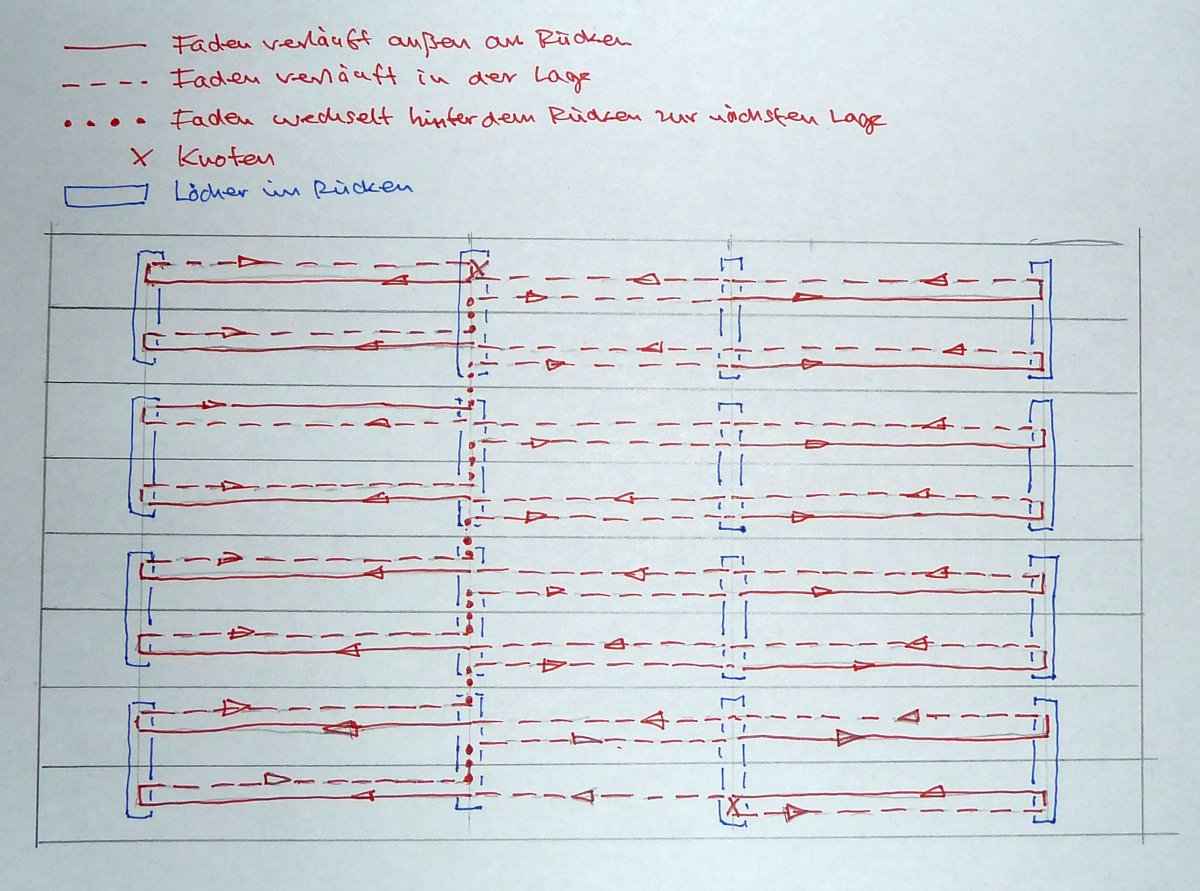 Faden verläuft außen am Rücken
Faden verläuft in der Lage
Faden wechselt hinter dem Rücken zur nächsten Lage
x Knoten
Löcher im Rücken